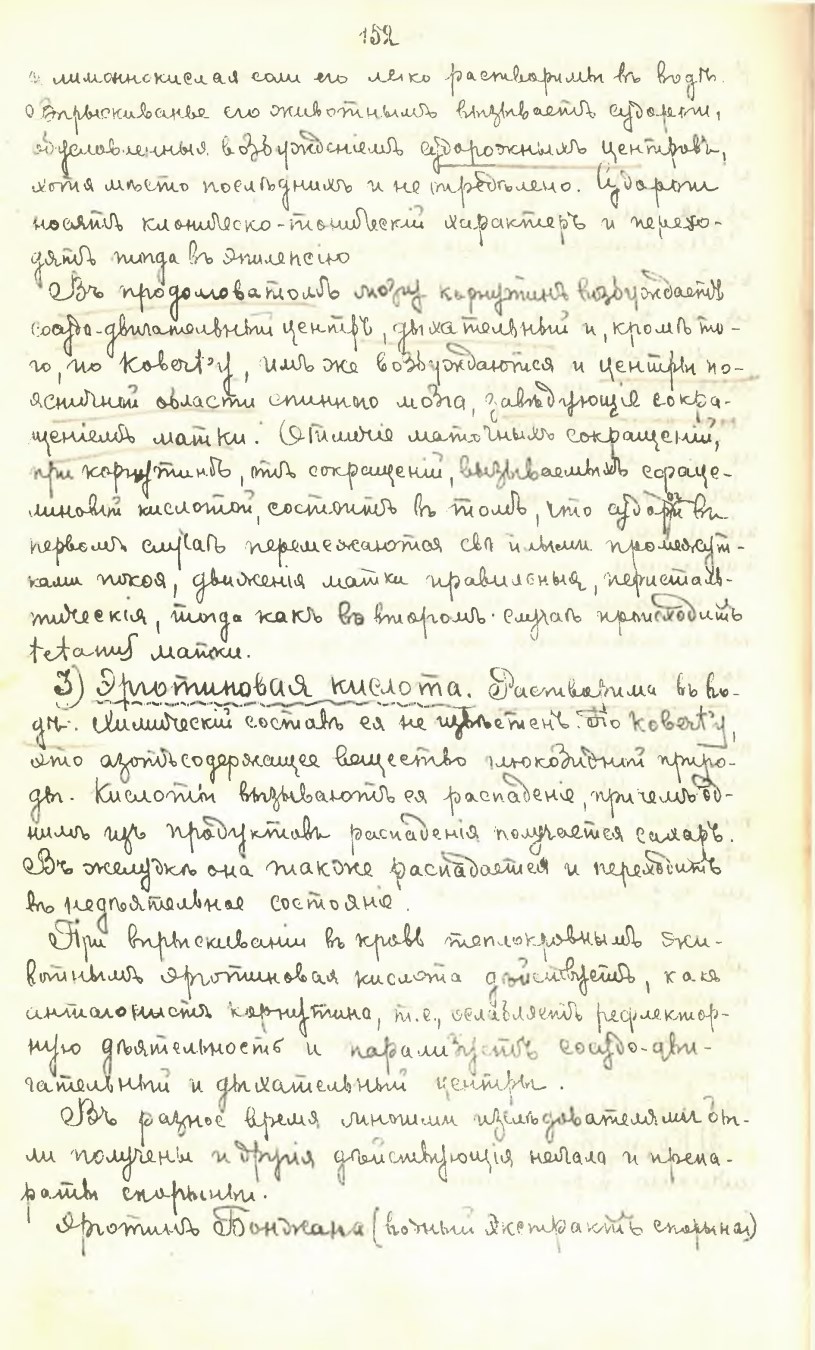 152
и лимоннокислая соли его легко растворимы въ водѣ.
Впрыскиванье его животнымъ вызываетъ судороги,
обусловленныя возбужденіемъ судорожныхъ центровъ,
хотя мѣсто послѣднихъ и не опредѣлено. Судороги
носятъ клоническо-тоническій характеръ и перехо-
дятъ тогда въ эпилепсію
Въ продолговатомъ мозгу корнутинъ возбуждаетъ
сосудо-двигательный центръ, дыхательный и, кромѣ то-
го, по Kobert'у, имъ же возбуждаются и центры по-
ясничной области спинного мозга, завѣдующіе сокра-
щеніемъ матки. Отличіе маточныхъ сокращеній,
при корнутинѣ, отъ сокращеній, вызываемыхъ сфаце-
линовой кислотой, состоитъ въ томъ, что судороги въ
первомъ случаѣ перемежаются свѣтлыми промежут-
ками покоя, движенія матки правильныя, перисталь-
тическія, тогда какъ во второмъ случаѣ происходитъ
tetanus матки.
3) Эрготиновая кислота. Растворима въ во-
дѣ. Химическій составъ ея не извѣстенъ. По Kobert'у,
это азотъсодержащее вещество глюкозидной приро-
ды. Кислоты вызываютъ ея распаденіе, причемъ од-
нимъ изъ продуктовъ распаденія получается сахаръ.
Въ желудкѣ она также распадается и переходитъ
въ недѣятельное состояніе.
При впрыскиваніи въ кровь теплокровнымъ жи-
вотнымъ эрготиновая кислота дѣйствуетъ, какъ
антагонистъ корнутина, т.е., ослабляетъ рефлектор-
ную дѣятельность и парализуетъ сосудо-дви-
гательный и дыхательный центры.
Въ разное время многими изслѣдователями бы-
ли получены и другія дѣйствующія начала и препа-
раты спорыньи.
Эрготинъ Бонжана (водный экстрактъ спорыньи)